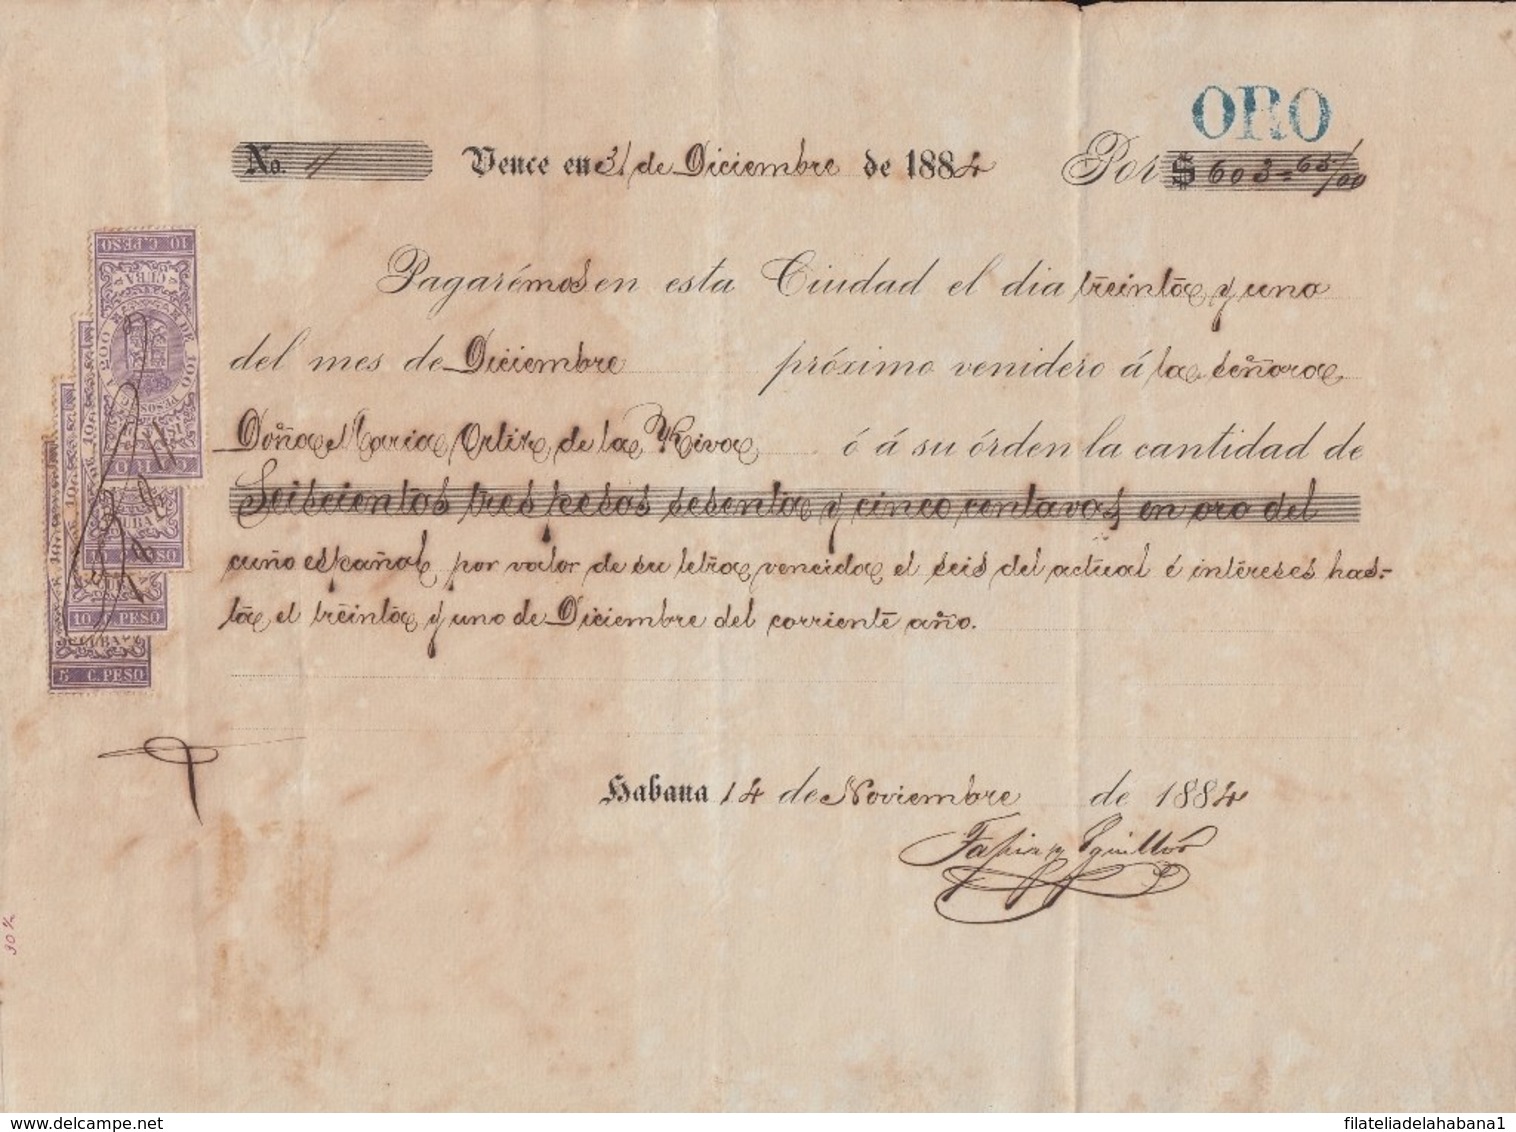 ORO
No. 4 Vence en 31 de Diciembre de 1884 Por $ 603=65/100
Pagarémos en esta Ciudad el dia treinta y uno
del mes de Diciembre próximo venidero á la señora
Doña Maria Ortiz de la Riva ó á su órden la cantidad de
Seiscientos tres pesos sesenta y cinco centavos en oro del
cuño español por valor de su letra vencida el seis del actual é intereses has-
ta el treinta y uno de Diciembre del corriente año.
Habana 14 de Noviembre de 1884
10 C. PESO
CUBA
10 C. PESO
10 C. PESO
CUBA
5 C. PESO
www.delcampe.net
filateliadelahabana1